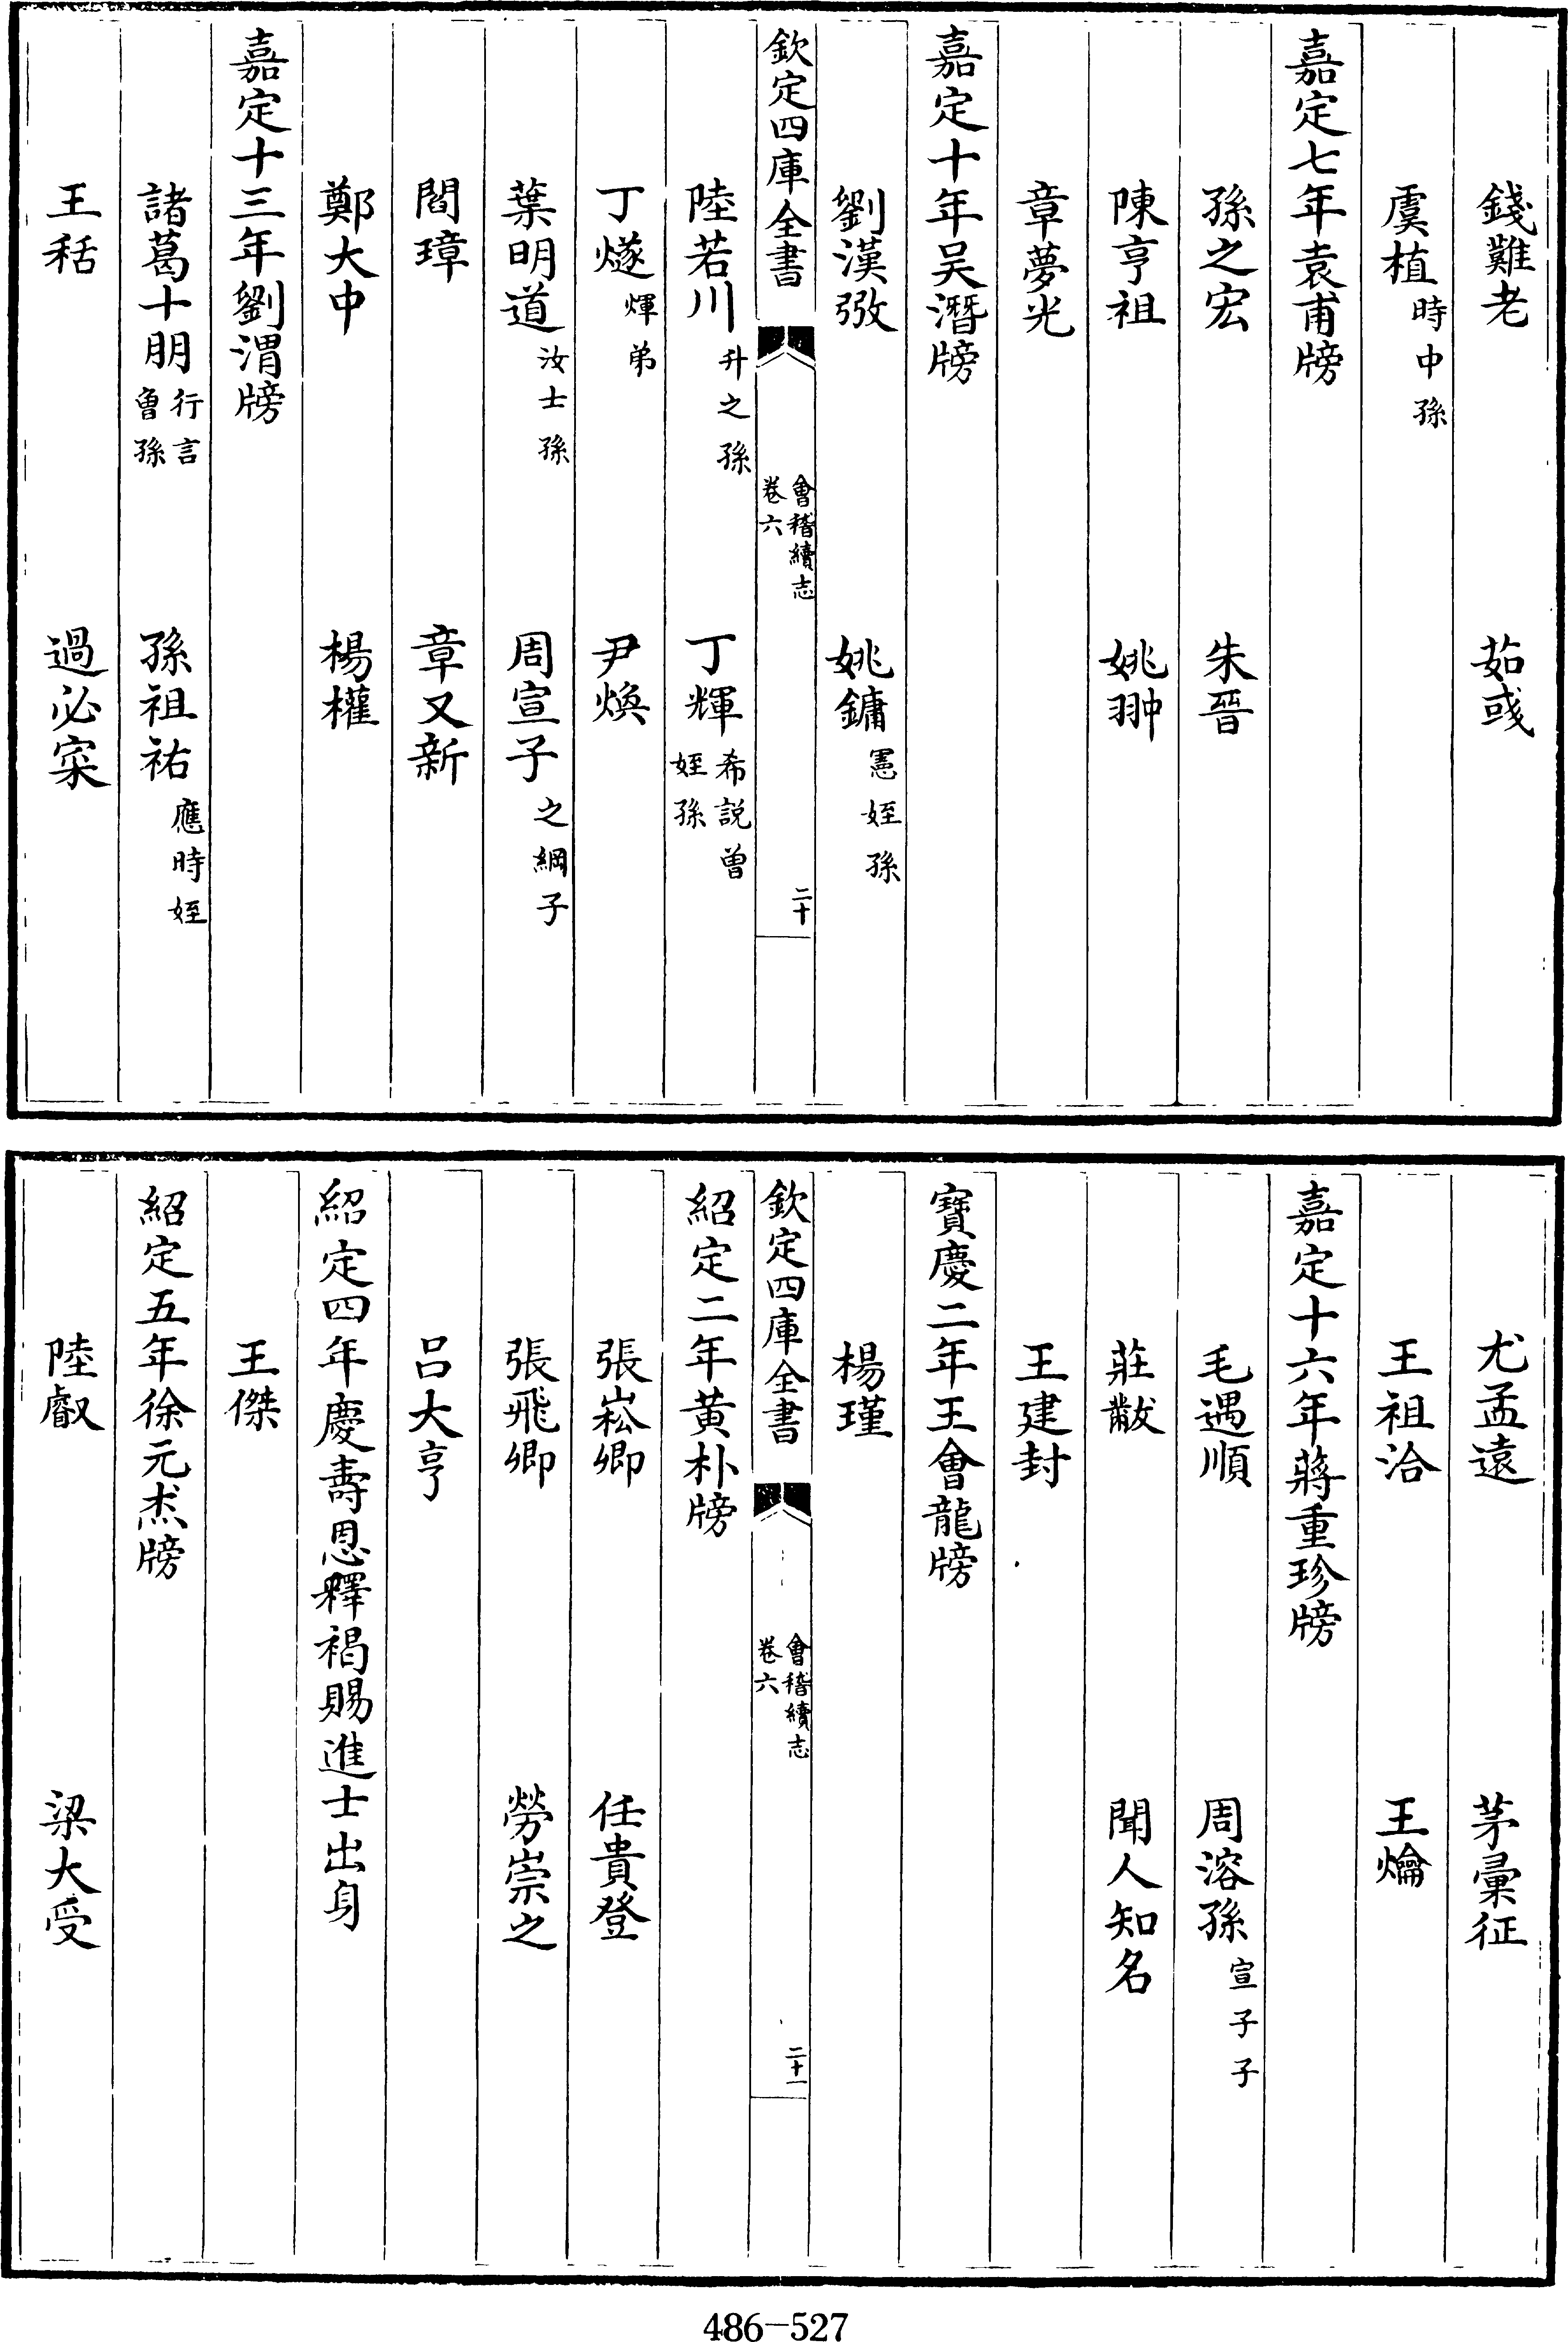 錢難老　茹彧
虞植時中孫
嘉定七年袁甫牓
孫之宏　朱晉
陳亨祖　姚翀
章夢光
嘉定十年吴潛牓
劉漢弼　姚鏞憲姪孫
欽定四庫全書　會稽續志卷六　二十
陸若川升之孫　丁輝希説曾姪孫
丁燧煇弟　尹煥
葉明道汝士孫　周宣子之綱子
閻璋　章又新
鄭大中　楊權
嘉定十三年劉渭牓
諸葛十朋行言曾孫　孫祖祐應時姪
王䅲　過必宷
尤孟遠　茅彙征
王祖洽　王爚
嘉定十六年蔣重珍牓
毛遇順　周溶孫宣子子
莊黻　聞人知名
王建封
寶慶二年王會龍牓
楊瑾
欽定四庫全書　會稽續志卷六　二十一
紹定二年黄朴牓
張崧卿　任貴登
張飛卿　勞崇之
吕大亨
紹定四年慶壽恩釋褐賜進士出身
王傑
紹定五年徐元杰牓
陸叡　梁大受
486-527